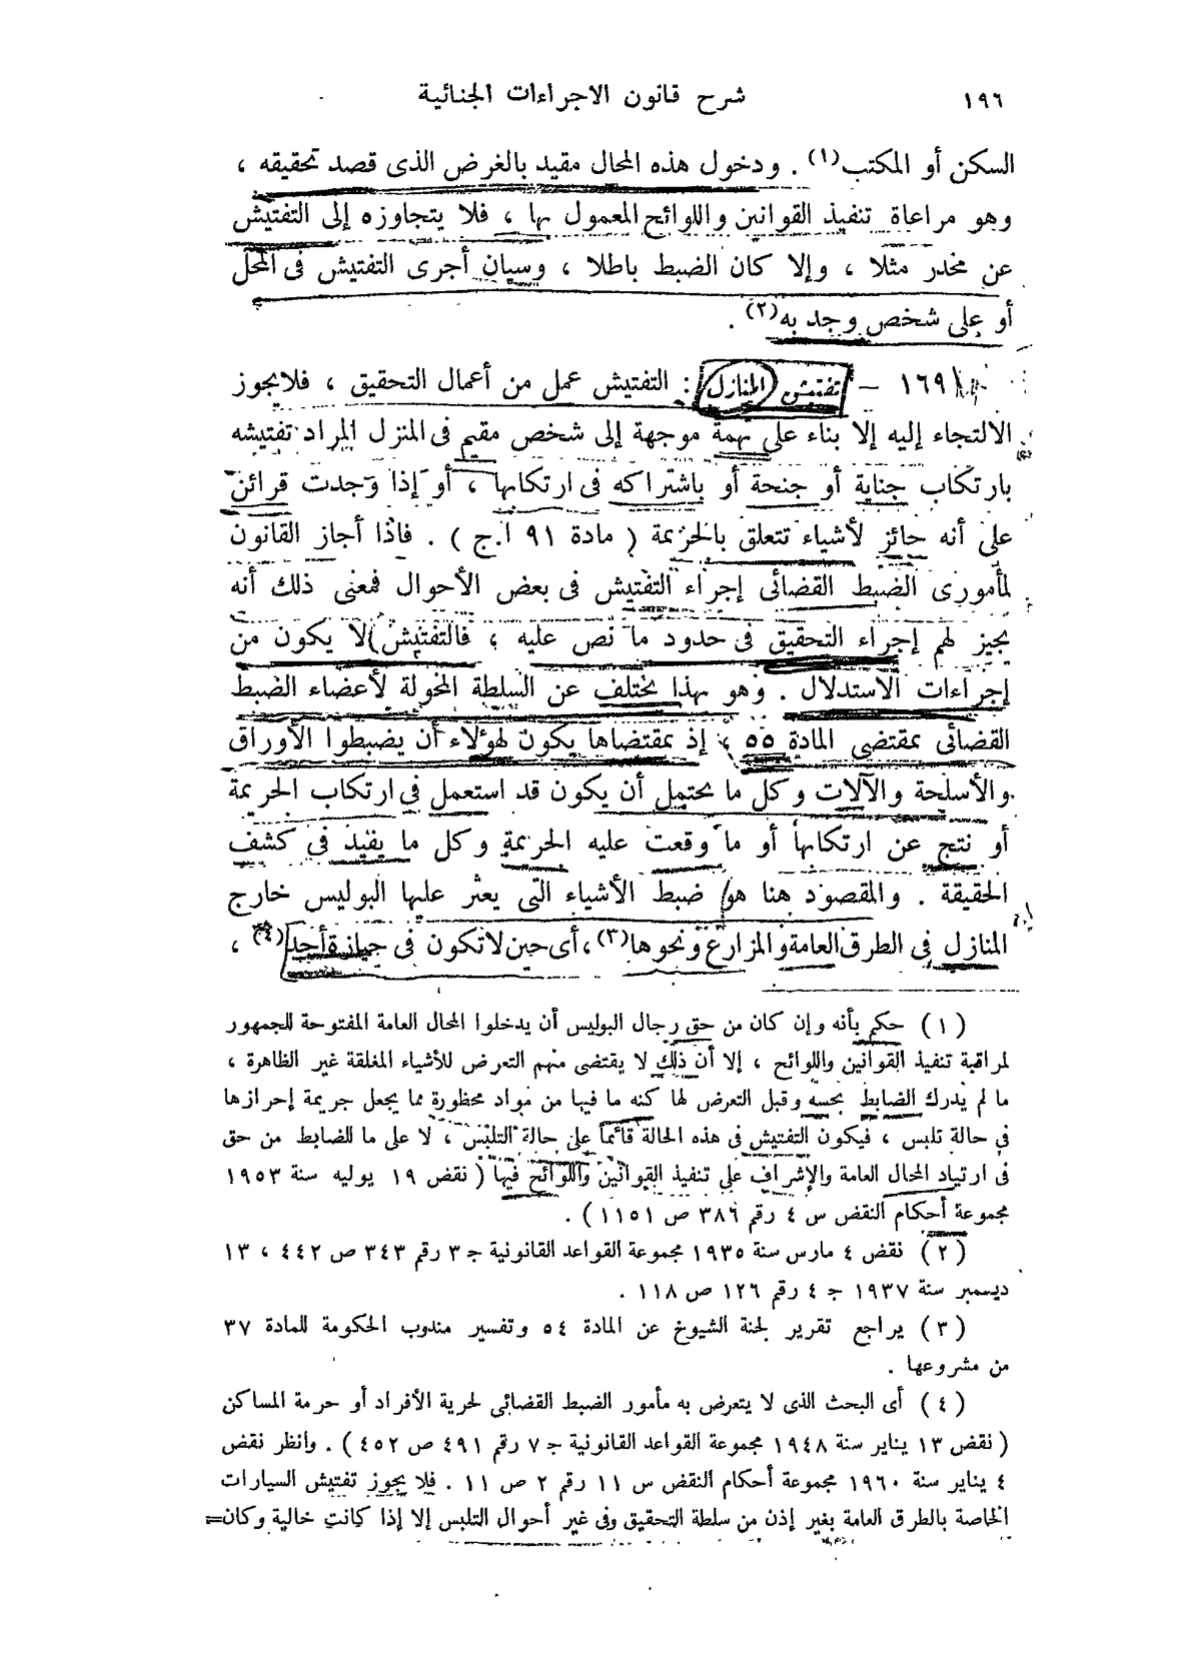 ١٩٦
شرح قانون الاجراءات الجنائية
السكن أو المكتب(١) . ودخول هذه المحال مقيد بالغرض الذى قصد تحقيقه ،
وهو مراعاة تنفيذ القوانين واللوائح المعمول بها ، فلا يتجاوزه إلى التفتيش
عن مخدر مثلا ، وإلا كان الضبط باطلا ، وسيان أجرى التفتيش فى المحل
أو على شخص وجد به(٢) .
١٦٩ – تفتيش المنازل : التفتيش عمل من أعمال التحقيق ، فلا يجوز
الالتجاء إليه إلا بناء على تهمة موجهة إلى شخص مقيم فى المنزل المراد تفتيشه
بارتكاب جناية أو جنحة أو باشتراكه فى ارتكابها ، أو إذا وجدت قرائن
على أنه حائز لأشياء تتعلق بالجريمة ( مادة ٩١ ا.ج ) . فاذا أجاز القانون
لمأمورى الضبط القضائى إجراء التفتيش فى بعض الأحوال فمعنى ذلك أنه
يجيز لهم إجراء التحقيق فى حدود ما نص عليه ، فالتفتيش لا يكون من
إجراءات الاستدلال . وهو بهذا يختلف عن السلطة المخولة لأعضاء الضبط
القضائى بمقتضى المادة ٥٥ ، إذ بمقتضاها يكون لهؤلاء أن يضبطوا الأوراق
والأسلحة والآلات وكل ما يحتمل أن يكون قد استعمل فى ارتكاب الجريمة
أو نتج عن ارتكابها أو ما وقعت عليه الجريمة وكل ما يفيد فى كشف
الحقيقة . والمقصود هنا هو ضبط الأشياء التى يعثر عليها البوليس خارج
المنازل فى الطرق العامة والمزارع ونحوها(٣) ، أى حين لا تكون فى حيازة أحد(٤) ،
( ١ ) حكم بأنه وإن كان من حق رجال البوليس أن يدخلوا المحال العامة المفتوحة للجمهور
لمراقبة تنفيذ القوانين واللوائح ، إلا أن ذلك لا يقتضى منهم التعرض للأشياء المغلقة غير الظاهرة ،
ما لم يدرك الضابط بحسه وقبل التعرض لها كنه ما فيها من مواد محظورة مما يجعل جريمة إحرازها
فى حالة تلبس ، فيكون التفتيش فى هذه الحالة قائما على حالة التلبس ، لا على ما للضابط من حق
فى ارتياد المحال العامة والإشراف على تنفيذ القوانين واللوائح فيها ( نقض ١٩ يوليه سنة ١٩٥٣
مجموعة أحكام النقض س ٤ رقم ٣٨٦ ص ١١٥١ ) .
( ٢ ) نقض ٤ مارس سنة ١٩٣٥ مجموعة القواعد القانونية ج ٣ رقم ٣٤٣ ص ٤٤٢ ، ١٣
ديسمبر سنة ١٩٣٧ ج ٤ رقم ١٢٦ ص ١١٨ .
( ٣ ) يراجع تقرير لجنة الشيوخ عن المادة ٥٤ وتفسير مندوب الحكومة للمادة ٣٧
من مشروعها .
( ٤ ) أى البحث الذى لا يتعرض به مأمور الضبط القضائى لحرية الأفراد أو حرمة المساكن
( نقض ١٣ يناير سنة ١٩٤٨ مجموعة القواعد القانونية ج ٧ رقم ٤٩١ ص ٤٥٢ ) . وانظر نقض
٤ يناير سنة ١٩٦٠ مجموعة أحكام النقض س ١١ رقم ٢ ص ١١ . فلا يجوز تفتيش السيارات
الخاصة بالطرق العامة بغير إذن من سلطة التحقيق وفى غير أحوال التلبس إلا إذا كانت خالية وكان=